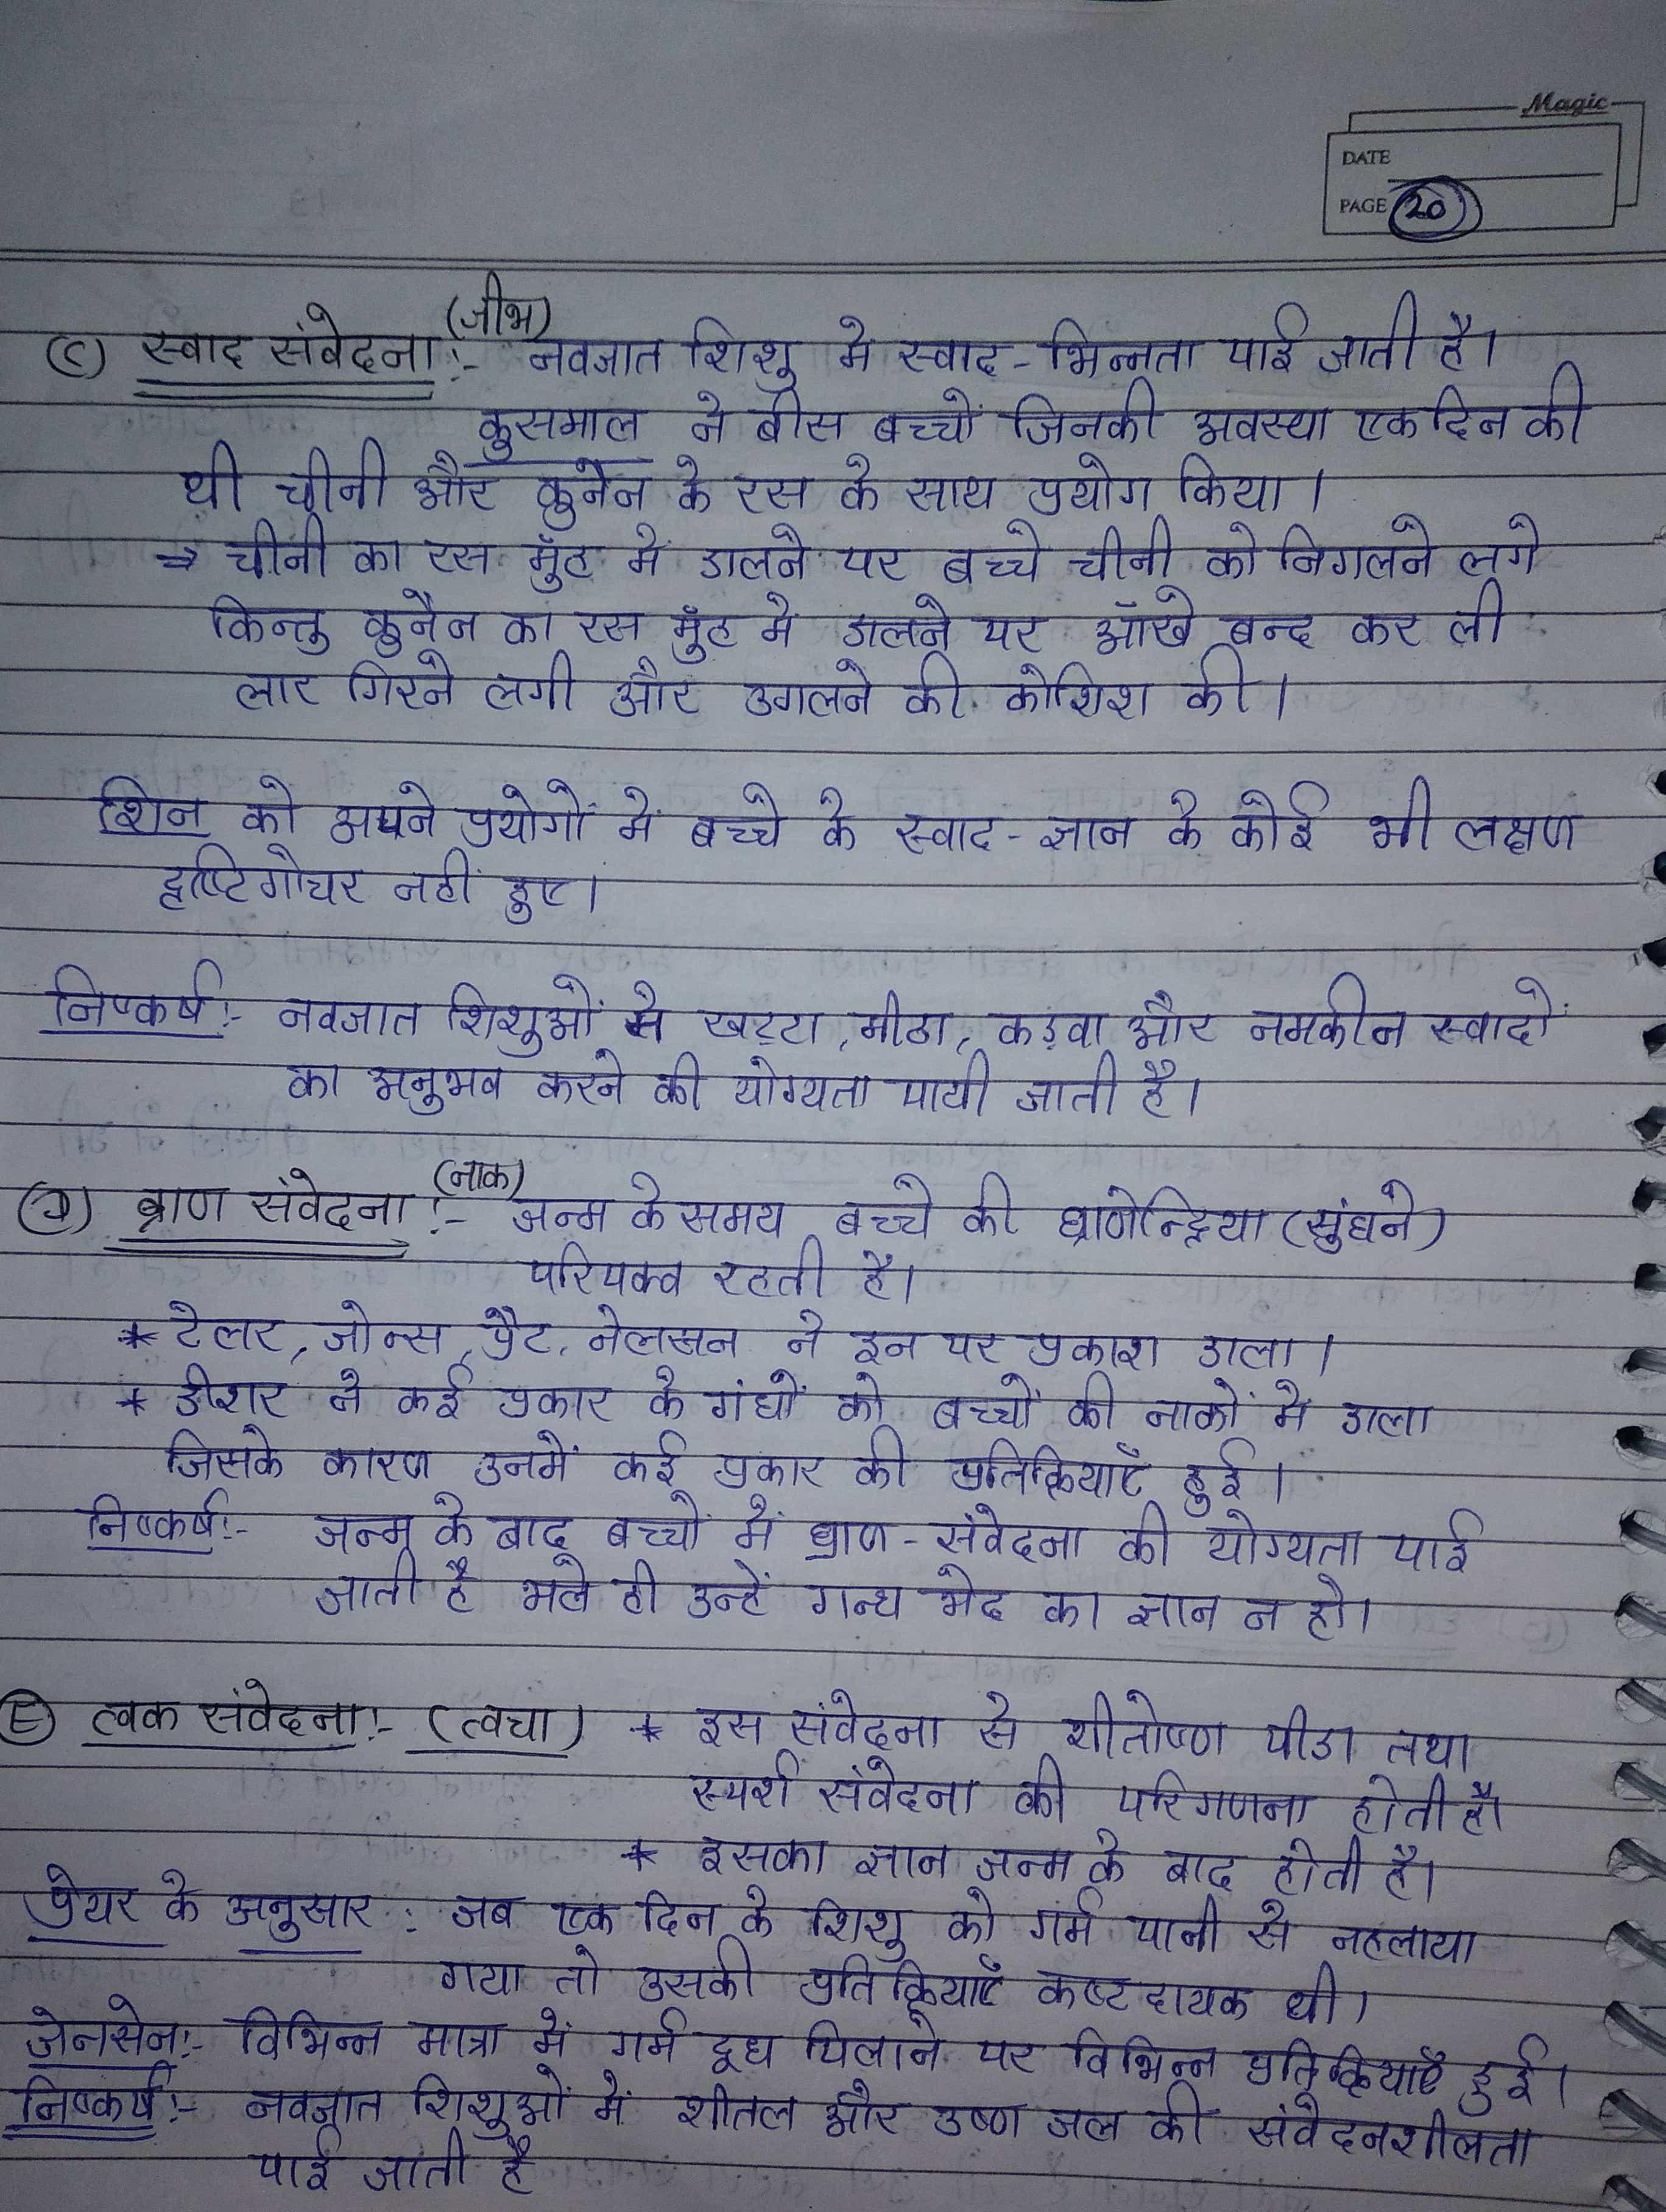 Magic
DATE
PAGE 20
(जीभ)
(C) स्वाद संवेदना :- नवजात शिशु मे स्वाद - भिन्नता पाई जाती है।
कुसमाल ने बीस बच्चों जिनकी अवस्था एक दिन की
थी चीनी और कुनैन के रस के साथ प्रयोग किया।
→ चीनी का रस मुँह मे डालने पर बच्चे चीनी को निगलने लगे
किन्तु कुनैन का रस मुँह मे डालने पर आँखे बन्द कर ली
लार गिरने लगी और उगलने की कोशिश की।
शिन को अपने प्रयोगों में बच्चे के स्वाद - ज्ञान के कोई भी लक्षण
दृष्टिगोचर नहीं हुए।
निष्कर्ष :- नवजात शिशुओं मे खट्टा, मीठा, कड़वा और नमकीन स्वादों
का अनुभव करने की योग्यता पायी जाती है।
(नाक)
(D) घ्राण संवेदना :- जन्म के समय बच्चे की घ्राणेन्द्रिया (सुंघने)
परिपक्व रहती है।
* टेलर, जोन्स, प्रैट, नेलसन ने इन पर प्रकाश डाला।
* डीशर ने कई प्रकार के गंधों को बच्चों की नाकों मे डाला
जिसके कारण उनमें कई प्रकार की प्रतिक्रियाएँ हुई।
निष्कर्ष :- जन्म के बाद बच्चों में घ्राण - संवेदना की योग्यता पाई
जाती है भले ही उन्हें गन्ध भेद का ज्ञान न हो।
(E) त्वक संवेदना :- (त्वचा) * इस संवेदना से शीतोष्ण पीडा तथा
स्पर्श संवेदना की परिगणना होती है।
* इसका ज्ञान जन्म के बाद होती है।
प्रेयर के अनुसार : जब एक दिन के शिशु को गर्म पानी से नहलाया
गया तो उसकी प्रतिक्रियाएँ कष्टदायक थी।
जेनसेन :- विभिन्न मात्रा में गर्म दूध पिलाने पर विभिन्न प्रतिक्रियाएँ हुई।
निष्कर्ष :- नवजात शिशुओं में शीतल और उष्ण जल की संवेदनशीलता
पाई जाती है